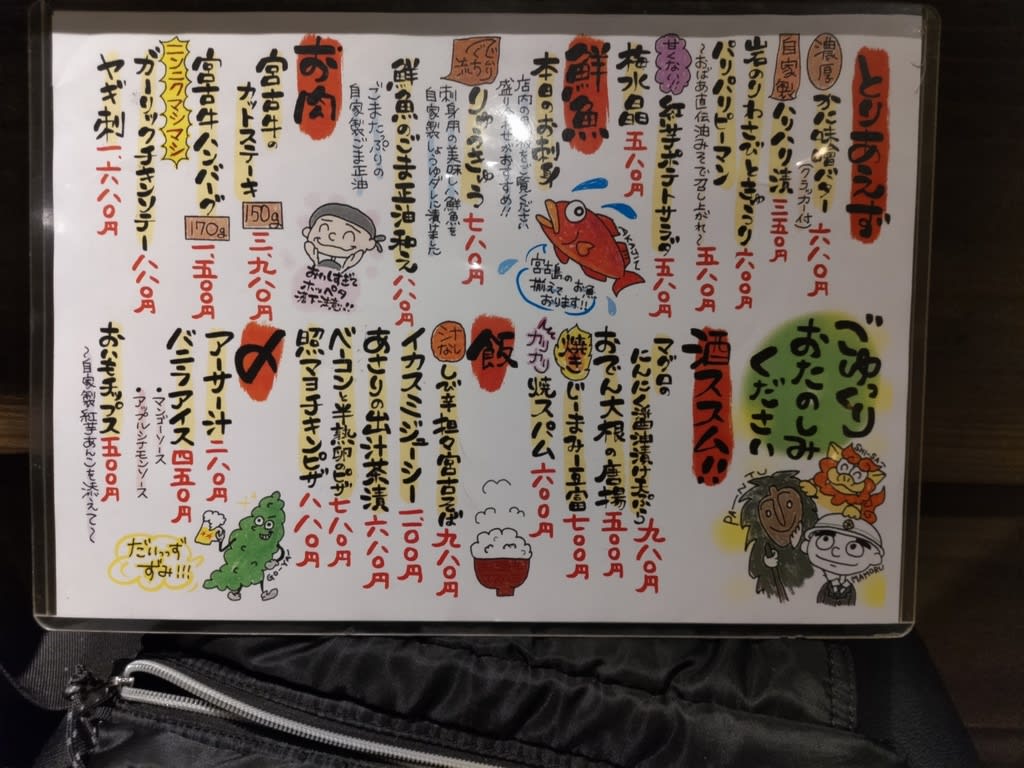 とりあえず
濃厚
かに味噌バター
(クラッカー付)
六八〇円
自家製
ハリハリ漬 三五〇円
岩のりわさびときゅうり 六〇〇円
パリパリピーマン
〜おばあ直伝油みそで召し上がれ〜
五八〇円
甘くない!!
紅芋ポテトサラダ 五八〇円
梅水晶 五八〇円
鮮魚
本日のお刺身
店内の黒板をご覧ください
盛り合わせがおすすめ!!
りゅうきゅう 七八〇円
刺身用の美味しい鮮魚を
自家製しょうゆダレに漬けました
鮮魚のごま正油和え 八八〇円
ごまたっぷりの
自家製ごま正油
AKAJIN
宮古島のお魚
揃えて
おります!!
お肉
宮古牛の
カットステーキ
150g
三、九八〇円
宮古牛ハンバーグ
170g
一、五〇〇円
ニンニクマシマシ
ガーリックチキンソテー 八八〇円
ヤギ刺 一、六八〇円
おいしすぎて
ホッペタ
落下注意!!
ごゆっくり
おたのしみ
ください
SHI-SA-
PA-NTU
MAMORU
酒ススム!!
マグロの
にんにく醤油漬け天ぷら 九八〇円
おでん大根の唐揚 五〇〇円
焼き
じーまみー豆富 七〇〇円
カリカリ
焼スパム 六〇〇円
飯
汁なし
しび辛担々宮古そば 九八〇円
イカスミジューシー 一、二〇〇円
あさりの出汁茶漬 六八〇円
ベーコンと半熟卵のピザ 七八〇円
照マヨチキンピザ 八八〇円
〆
アーサー汁 二八〇円
バニラアイス 四五〇円
・マンゴーソース
・アップルシナモンソース
おいもチップス 五〇〇円
〜自家製紅芋あんこを添えて〜
GO-YA
だいっず
ずみ!!!